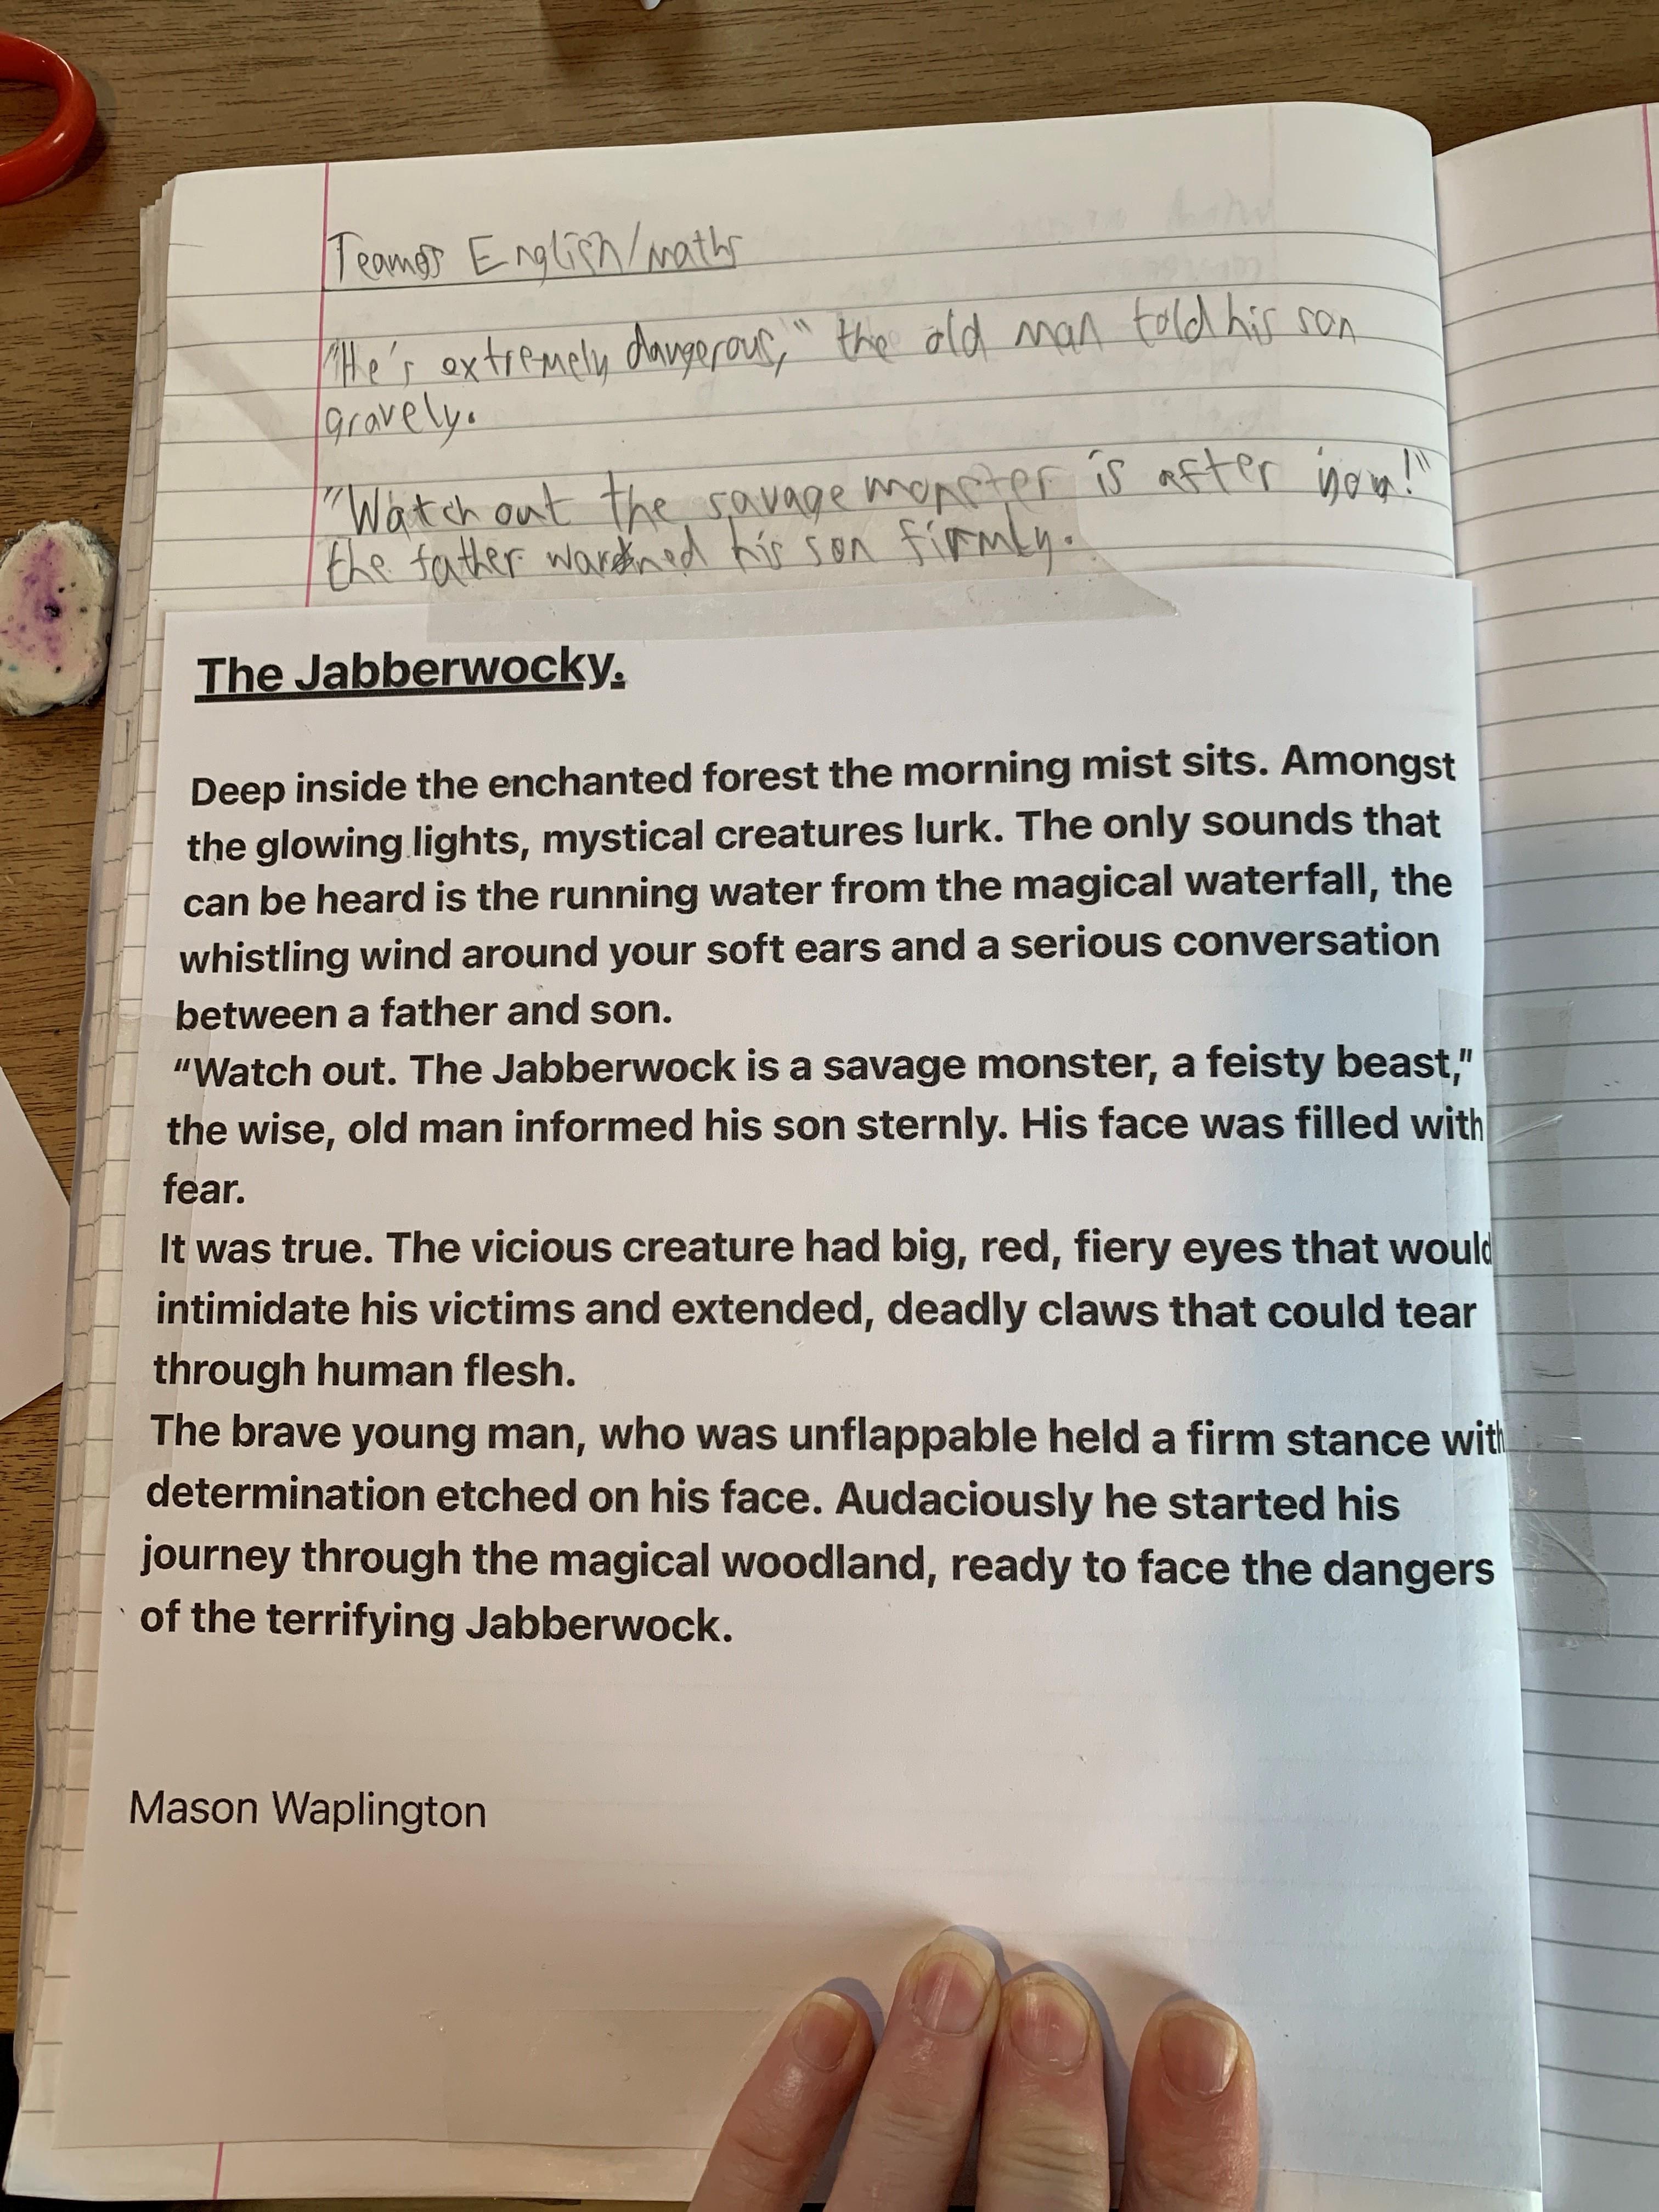 Teams English/maths
"He's extremely dangerous," the old man told his son
gravely.
"Watch out the savage monster is after you!"
the father warned his son firmly.
The Jabberwocky.
Deep inside the enchanted forest the morning mist sits. Amongst
the glowing lights, mystical creatures lurk. The only sounds that
can be heard is the running water from the magical waterfall, the
whistling wind around your soft ears and a serious conversation
between a father and son.
“Watch out. The Jabberwock is a savage monster, a feisty beast,”
the wise, old man informed his son sternly. His face was filled with
fear.
It was true. The vicious creature had big, red, fiery eyes that would
intimidate his victims and extended, deadly claws that could tear
through human flesh.
The brave young man, who was unflappable held a firm stance with
determination etched on his face. Audaciously he started his
journey through the magical woodland, ready to face the dangers
of the terrifying Jabberwock.
Mason Waplington